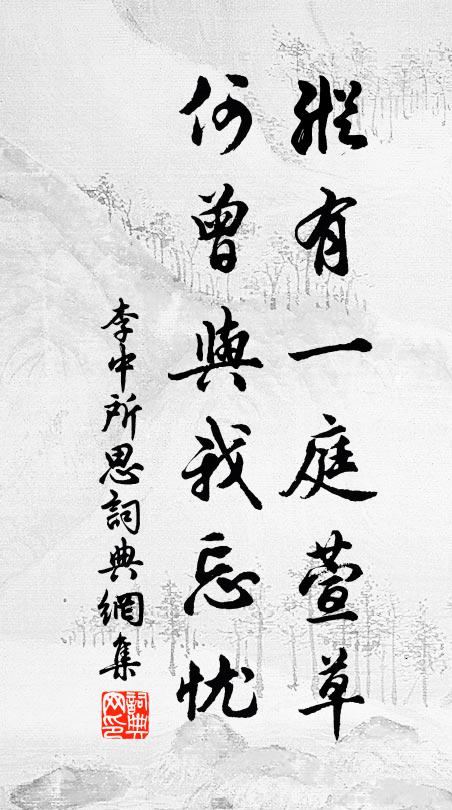 縱有一庭萱草
何曾與我忘忧
李中所思詞典網集
詞典网印